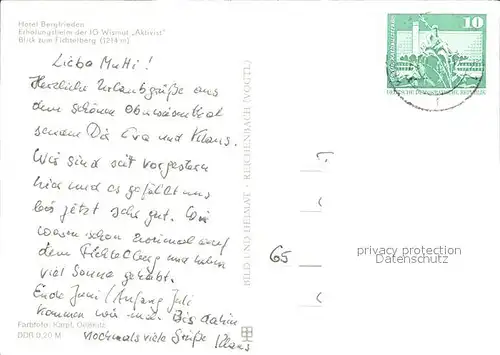 Hotel Bergfrieden
Erholungsheim der IG Wismut „Aktivist"
Blick zum Fichtelberg (1214 m)
Liebe Mutti!
Herzliche Urlaubsgrüße aus
dem schönen Oberwiesenthal
senden Dir Eva und Klaus.
Wir sind seit vorgestern
hier und es gefällt uns
bis jetzt sehr gut. Wir
waren schon zweimal auf
dem Fichtelberg und haben
viel Sonne gehabt.
Ende Juni / Anfang Juli
kommen wir Bis dahin
nochmals viele Grüße Klaus
Farbfoto: Karpf, Oelsnitz
DDR 0,20 M
BILD UND HEIMAT · REICHENBACH (VOGTL)
10
DEUTSCHE DEMOKRATISCHE REPUBLIK
65
privacy protection
Datenschutz